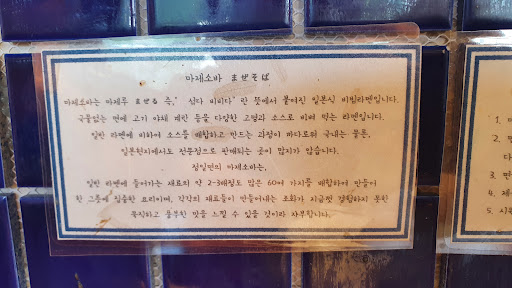 마제소바 まぜそば
마제소바는 마제루 まぜる 즉, 섞다 비비다' 란 뜻에서 붙여진 일본식 비빔라멘입니다.
국물없는 면에 고기 야채 계란 등을 다양한 고명과 소스로 비벼 먹는 라멘입니다.
일반 라멘에 비하여 소스를 배합하고 만드는 과정이 까다로워 국내는 물론,
일본현지에서도 전문점으로 판매되는 곳이 많지가 않습니다.
정일면의 마제소바는,
일반 라멘에 들어가는 재료의 약 2-3배정도 많은 60여 가지를 배합하게 만들어
한 그릇에 집중한 요리이며, 각각의 재료들이 만들어내는 조화가 지금껏 경험하지 못한
묵직하고 풍부한 맛을 느낄 수 있을 것이라 자부합니다.
1.
2.
다
3. 면
4.
5. 시